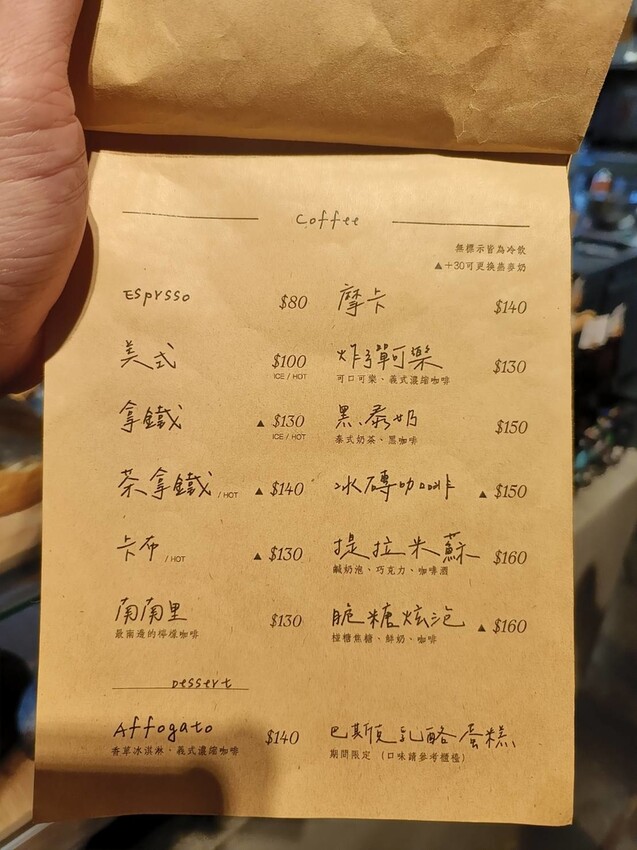 Coffee
無標示皆為冷飲
▲+30可更換燕麥奶
Esprsso $80
美式 $100
ICE / HOT
拿鐵 ▲ $130
ICE / HOT
茶拿鐵 / HOT ▲ $140
卡布 / HOT ▲ $130
南南里 $130
最南邊的檸檬咖啡
摩卡 $140
炸彈可樂 $130
可口可樂、義式濃縮咖啡
黑、泰奶 $150
泰式奶茶、黑咖啡
冰磚咖啡 ▲ $150
提拉米蘇 $160
鹹奶泡、巧克力、咖啡酒
脆糖炫泡 ▲ $160
椪糖焦糖、鮮奶、咖啡
Dessert
Affogato $140
香草冰淇淋、義式濃縮咖啡
巴斯克乳酪蛋糕
期間限定 (口味請參考櫃檯)